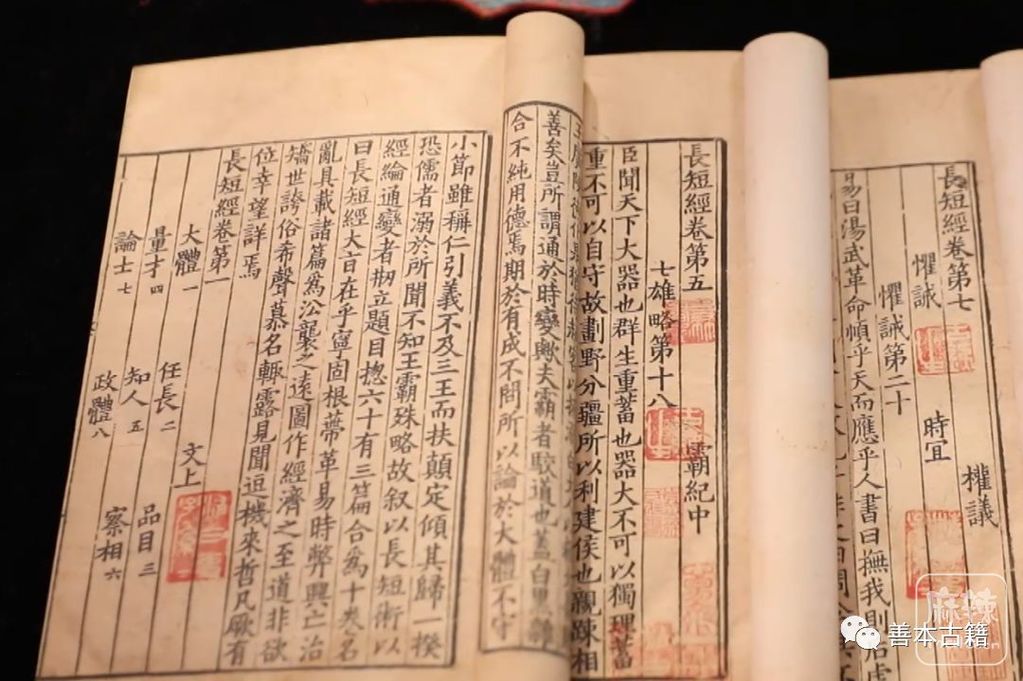 善矣豈所謂通於時變歟夫霸者駁道也蓋白黑雜
合不純用德焉期於有成不問所以論於大體不守
小節雖稱仁引義不及三王而扶顛定傾其歸一揆
恐儒者溺於所聞不知王霸殊略故叙以長短術以
經綸通變者刱立題目揔六十有三篇合爲十卷名
曰長短經大旨在乎寧固根蔕革易時弊興亡治
亂具載諸篇爲沿襲之遠圖作經濟之至道非欲
矯世誇俗希聲慕名輒露見聞逗機來哲凡厥有
位幸望詳焉
長短經卷第一
文上
大體一 任長二 品目三
量才四 知人五 察相六
論士七 政體八
長短經卷第五 霸紀中
七雄略第十八
臣聞天下大器也群生重蓄也器大不可以獨理蓄
重不可以自守故劃野分疆所以利建侯也親踈相
長短經卷第七 權議
懼誡 時宜
懼誡第二十
易曰湯武革命順乎天而應乎人書曰撫我則后虐
善本古籍